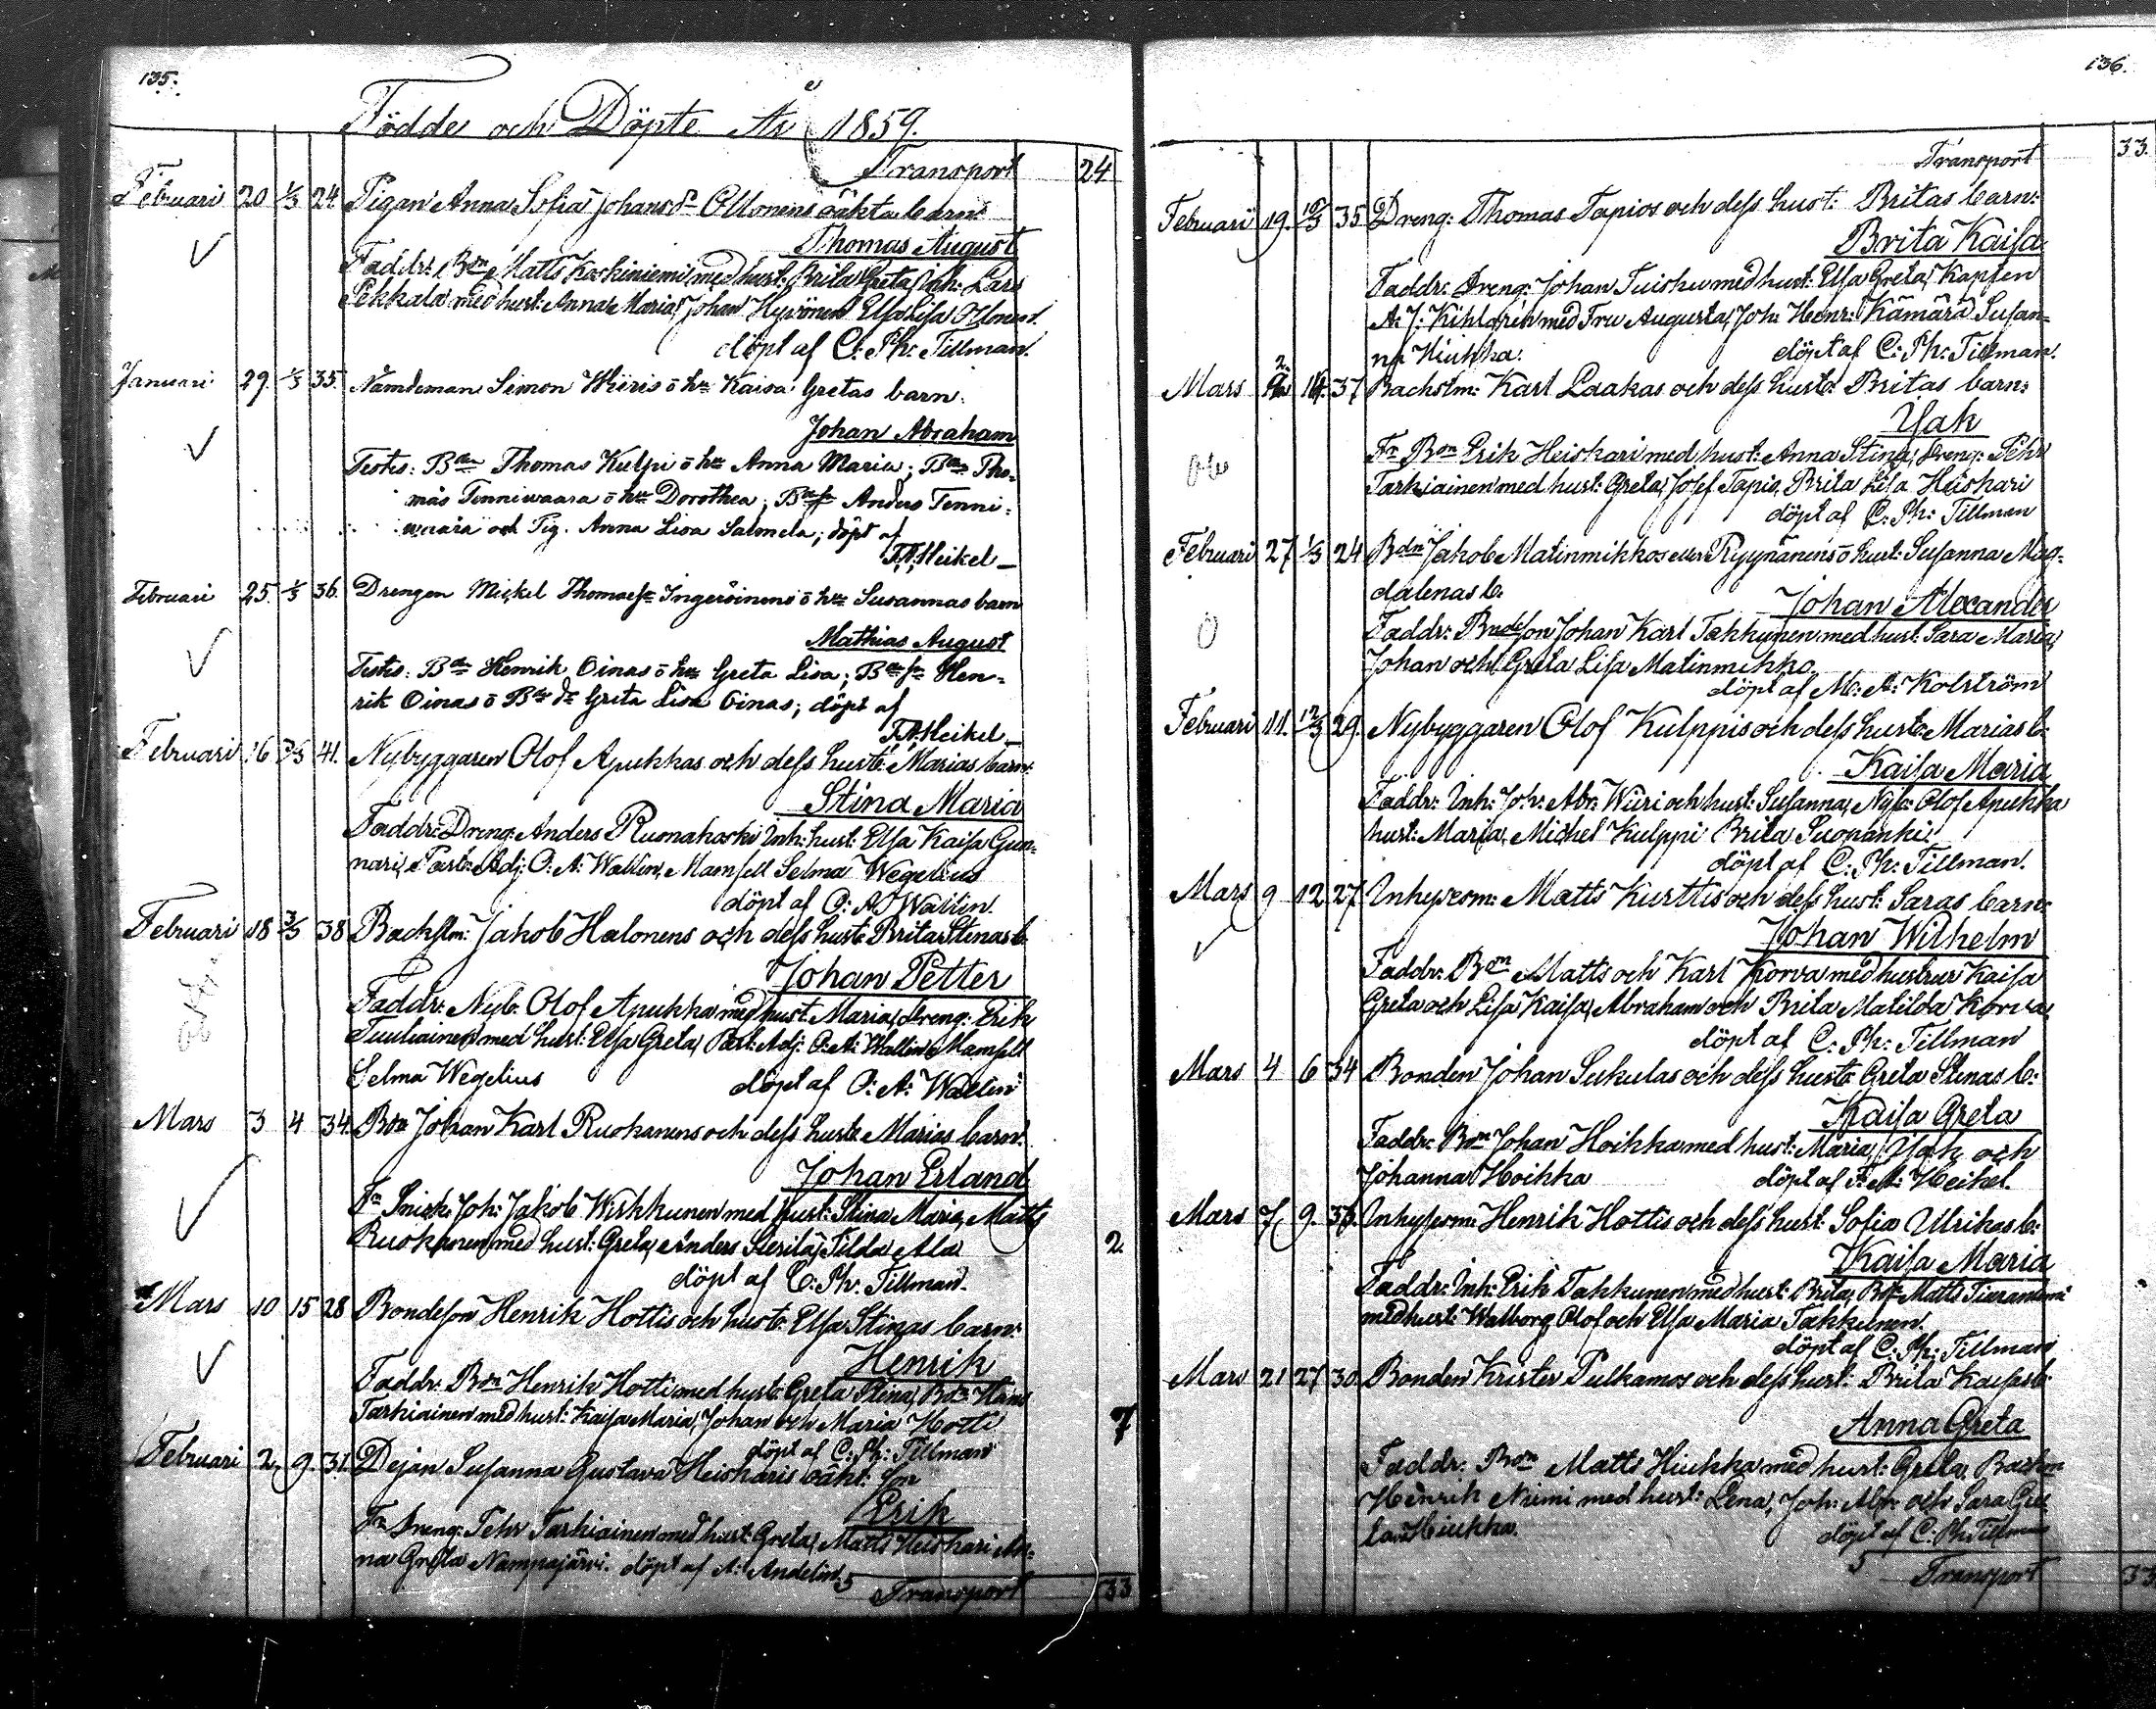 135.
Födde och Döpte År 1859.
Transport 24
Februari 20 1/3 24 Pigan Anna Sofia Johansdr Ollonens oäkta barn
Thomas August
Faddr: Bon Matts Koskiniemi med hust: Brita Greta, Inh: Lars
Pekkala med hust: Anna Maria, Johan Hyvönen Elsa Lisa Ollonen.
döpt af C: Ph: Tillman.
Januari 29. 1/3 35. Nämdeman Simon Wiiris o hu Kaisa Gretas barn.
Johan Abraham
Testes: Bdn Thomas Kulpi o hu Anna Maria; Bdn Tho-
mas Tenniwaara o hu Dorothea; Bdsn Anders Tenni-
waara och Pig. Anna Lisa Salmela; döpt af
F.A. Heikel
Februari 25. 1/3 36. Drengen Mickel Thomasn Ingeröinens o hu Susannas barn
Mathias August
Testes: Bdn Henrik Oinas o hu Greta Lisa; Bdn sn Hen-
rik Oinas o Bds dr Greta Lisa Oinas; döpt af
F.A. Heikel
Februari 16 3/3 41. Nybyggaren Olof Apukkas och dess hust: Marias barn:
Stina Maria
Faddr: Dreng: Anders Ruonakoski Inh: hust: Elsa Kaisa Gun-
nari, Past: Adj: O: A: Wallin, Mamsell Selma Wegelius
döpt af O: A: Wallin.
Februari 18 3/3 38 Backstm: Jakob Halonens och dess hust: Brita Stinas b.
Johan Petter
Faddr: Nyb: Olof Apukka med hust: Maria, dreng: Erik
Tuuliainen med hust: Elsa Greta, Past: Adj: O: A: Wallin, Mamsell
Selma Wegelius döpt af O: A: Wallin
Mars 3 4 34. Bon Johan Karl Ruokanens och dess hust: Marias barn:
Johan Erland
Fr Snick: Joh: Jakob Wirkkunen med hust: Stina Maria, Matts
Ruokanen med hust: Greta, Anders Tilda Ala
2.
döpt af C: Ph: Tillman.
Mars 10 15 28 Bondeson Henrik Hottis och hust: Elsa Stinas barn:
Henrik
Faddr: Bon Henrik Hotti med hust: Greta Stina, Bon Hans
Tarkiainen med hust: Kaisa Maria, Johan och Maria Hotti
7
döpt af C: Ph: Tillman
Februari 2 9. 31. Dejan Susanna Gustava Heiskaris oäkt: son
Erik
Fr dreng: Pehr Tarkiainen med hust: Greta, Matts Heiskari An-
na Greta Nampajärvi. döpt af A: Andelin. 5
Transport 33
136.
Transport 33.
Februari 19. 10/3 35 Dreng: Thomas Tapios och dess hust: Britas barn:
Brita Kaisa
Faddr: dreng: Johan Tuisku med hust: Elsa Greta, Kapten
A: J: Kihlgren med Fru Augusta, Joh: Henr: Kämärä Susan-
na Hiukka: döpt af C: Ph: Tillman.
Mars 2 14. 37 Backstm: Karl Laakas och dess hust: Britas barn:
Isak
Fr Bon Erik Heiskari med hust: Anna Stina, dreng: Pehr
Tarkiainen med hust: Greta, Josef Tapio, Brita Lisa Heiskari
döpt af C: Ph: Tillman
Februari 27 1/3 24 Bdn Jakob Matinmikkos eller Ryynänens o hust: Susanna Mag-
dalenas b.
Johan Alexander
Faddr: Bondeson Johan Karl Takkunen med hust: Sara Maria,
Johan och Greta Lisa Matinmikko.
döpt af M: A: Kolström
Februari 11. 12/3 29. Nybyggaren Olof Kulppis och dess hust: Marias b.
Kaisa Maria
Faddr: Inh: Joh: Abr: Wiiri och hust: Susanna, Nyb: Olof Apukka
hust: Maria, Mickel Kulppi Brita Suopanki.
döpt af C: Ph: Tillman.
Mars 9 12 27 Inhysesm: Matts Kurttis och dess hust: Saras barn:
Johan Wilhelm
Faddr: Bon Matts och Karl Korva med hustrur Kaisa
Greta och Lisa Kaisa, Abraham och Brita Matilda Korva.
döpt af C: Ph: Tillman
Mars 4 6 34 Bonden Johan Sukulas och dess hust: Greta Stinas b:
Kaisa Greta
Faddr: Bon Johan Hoikka med hust: Maria, Isak och
Johanna Hoikka döpt af F: A: Heikel.
Mars 7 9. 36. Inhysesm: Henrik Hottis och dess hust: Sofia Ulrikas b:
Kaisa Maria
Faddr: Inh: Erik Takkunen med hust: Brita, Bon Matts Tiuraniemi
med hust: Walborg, Olof och Elsa Maria Takkunen.
döpt af C: Ph: Tillman
Mars 21 27 30. Bonden Krister Pulkamos och dess hust: Brita Kaisas b:
Anna Greta
Faddr: Bon Matts Hiukka med hust: Greta, Backm
Henrik Niemi med hust: Lena, Joh: Abr: och Sara Gre-
ta Hiukka. döpt af C: Ph: Tillman
5 Transport 33